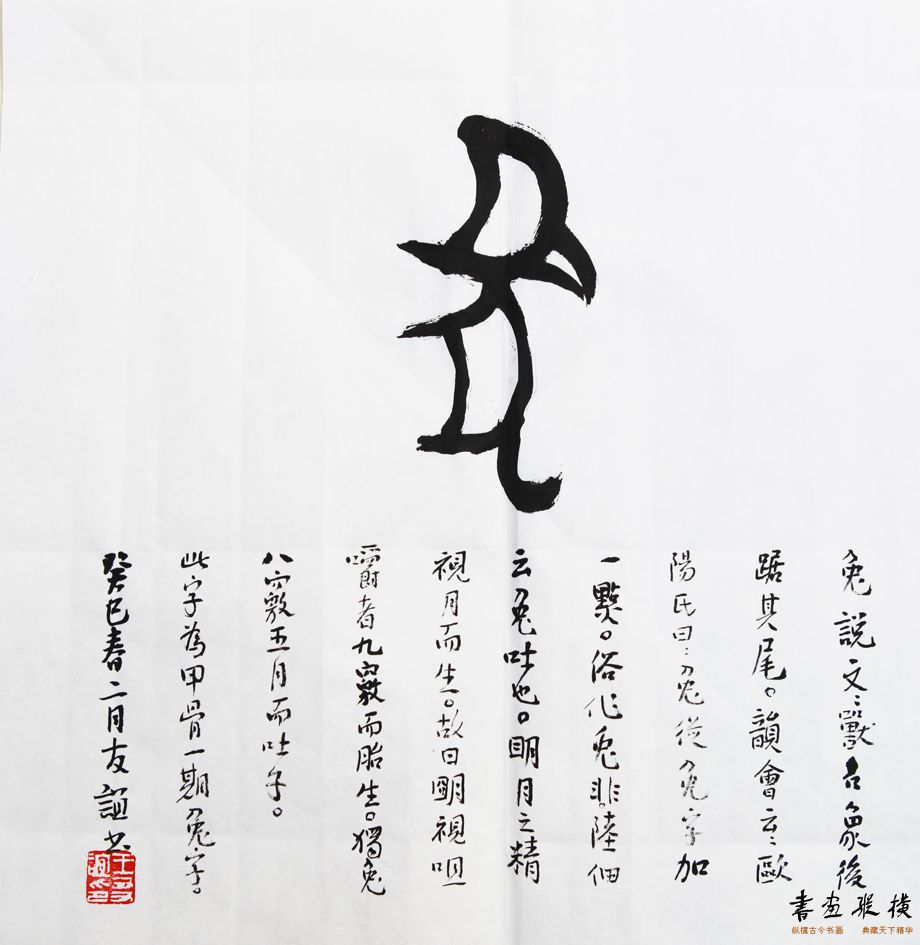 兔
兔説文:獸名象後
踞其尾。韻會云:歐
陽氏曰:兔從免字加
一點。俗作兔非。陸佃
云兔吐也。明月之精
視月而生。故曰明視咀
嚼者九竅而胎生。獨兔
八竅五月而吐子。
此字為甲骨一期兔字。
癸巳春二月友誼书
書画縱橫
纵横古今书画 典藏天下精华